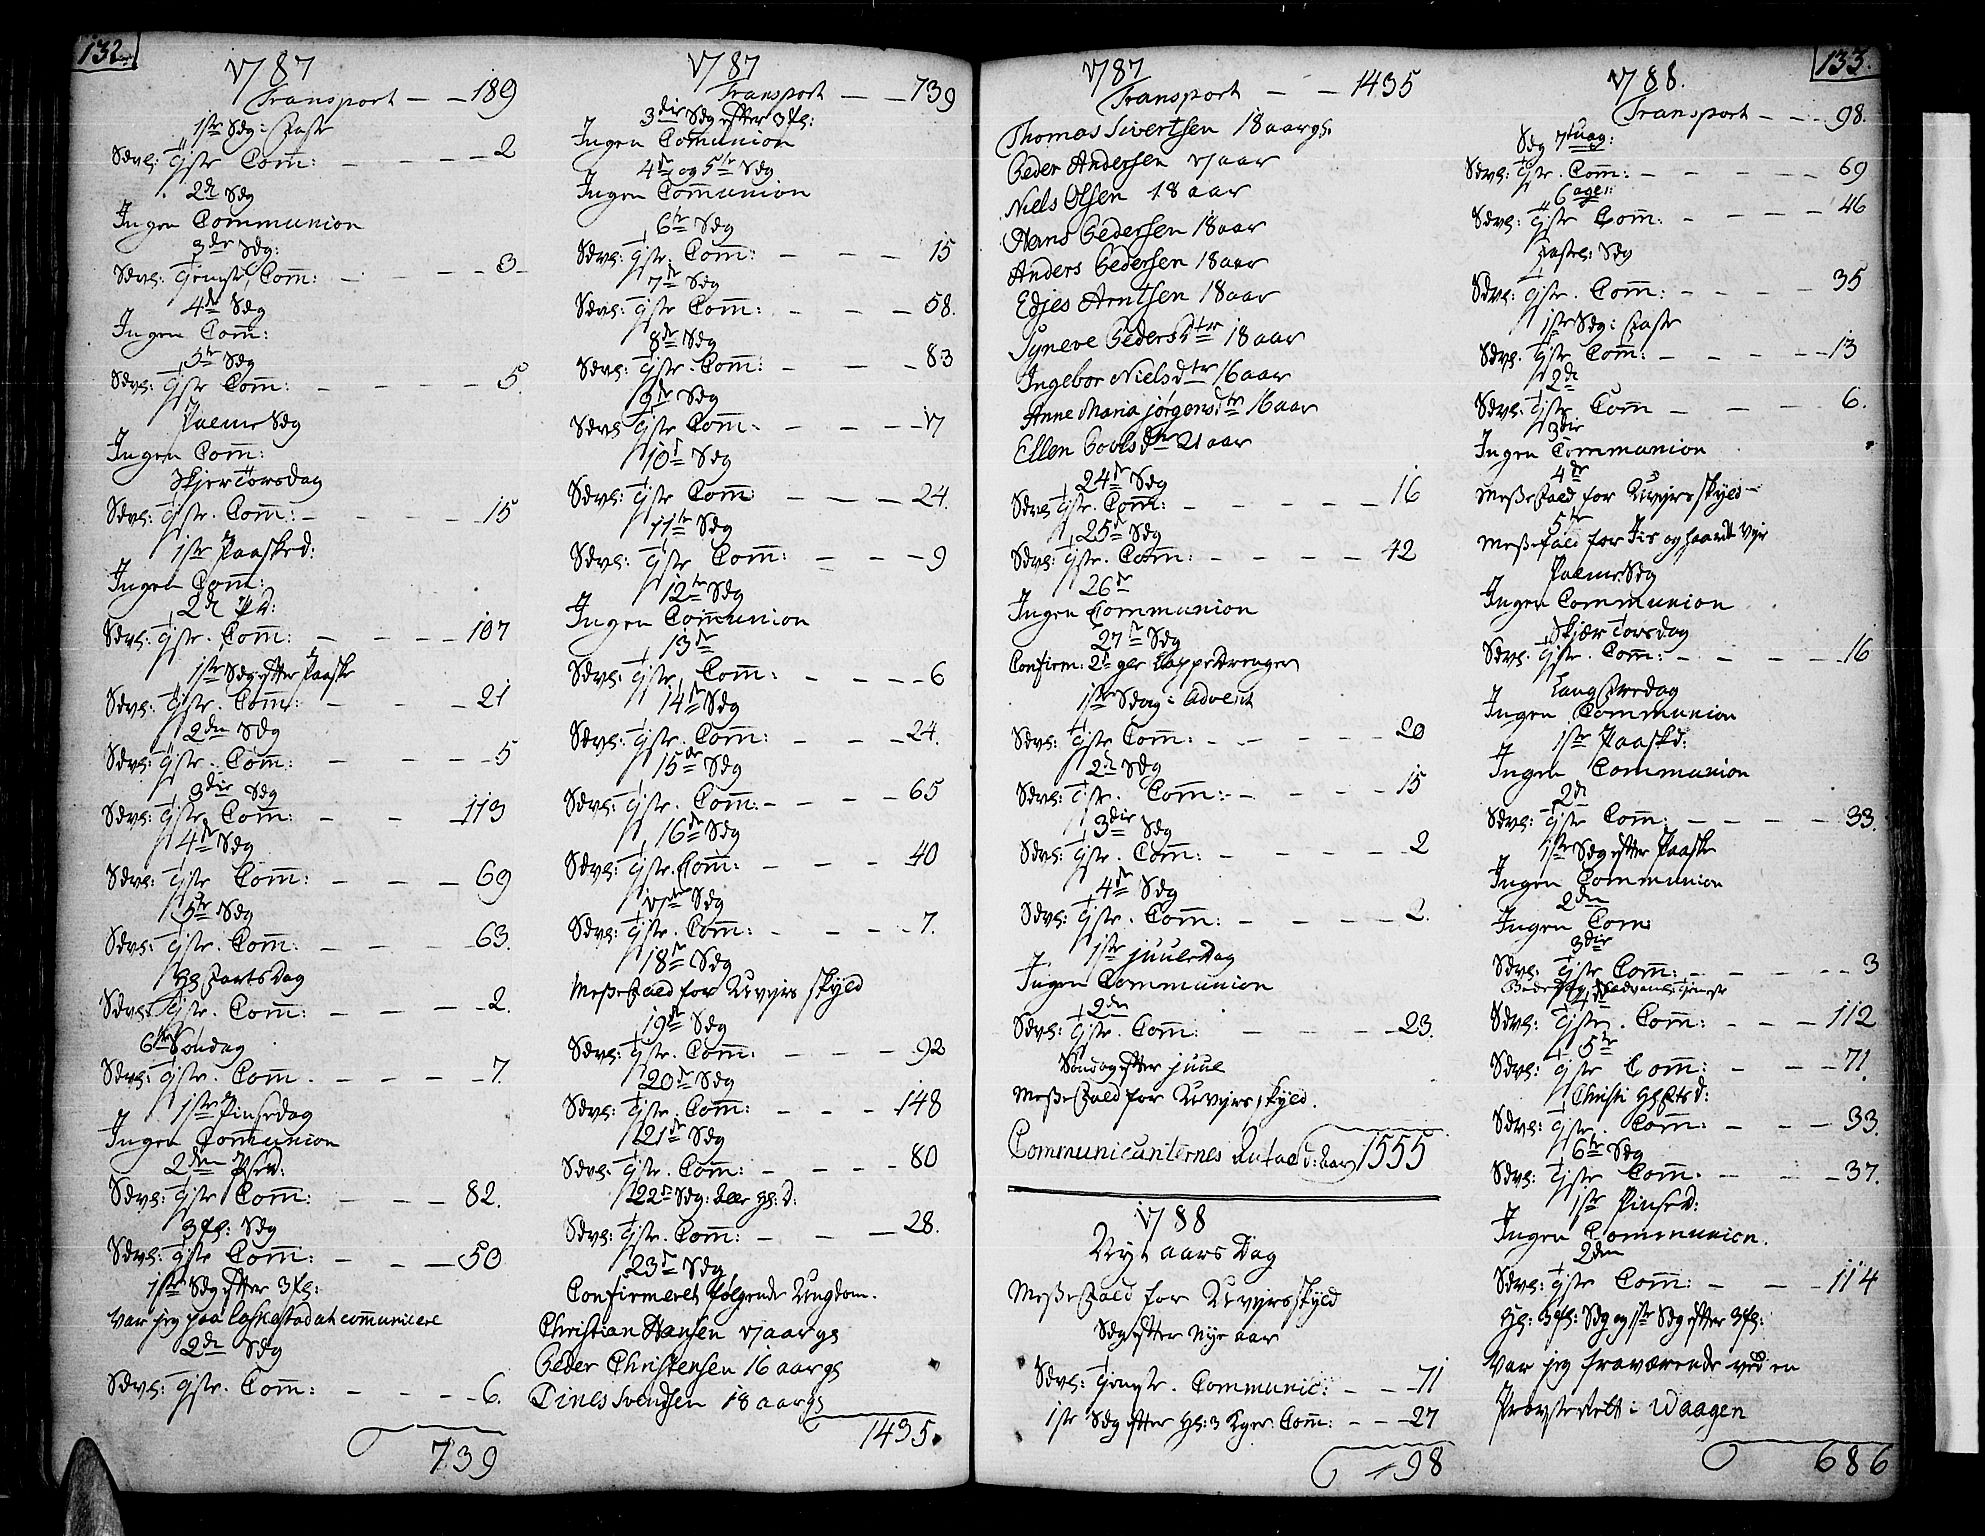 132.
1787
Transport — — 189
1ste Sdg: Faste
Sdvl: Tjste Com̄: — — — — 2
2d Sdg
Ingen Communion
3die Sdg:
Sdvl: Tjeniste Com̄: — — — — 3
4de Sdg
Ingen Com̄:
5te Sdg
Sdvl: Tjste Com̄: — — — — 5
Palme Sdg
Ingen Com̄:
Skjer Torsdag
Sdvl: Tjste. Com̄: — — — — 15
1ste Paasked:
Ingen Com̄:
2d Pd:
Sdvl: Tjste. Com̄: — — — — 107
1ste Sdg efter Paaske
Sdvl: Tjste. Com̄: — — — 21
2den Sdg
Sdvl: Tjste. Com̄: — — — — 5
3die Sdg
Sdvl: Tjste Com̄: — — — 113
4de Sdg
Sdvl: Tjste Com̄: — — — 69
5te Sdg
Sdvl: Tjste. Com̄: — — — 63.
Hl Fartsdag
Sdvl: Tjste. Com̄: — — — — 2.
6te Søndag
Sdvl: Tjste. Com̄. — — — — 7.
1ste Pinsedag
Ingen Com̄union
2den Psed:
Sdvl: Tjste Com̄: — — — 82.
3fl: Sdg
Sdvl: Tjste Com̄: — — — 50
1ste Sdg efter 3fl:
Var jeg paa Loskestad at com̄unicere
2de Sdg
Sdvl: Tjste. Com̄: — — — — 6.
739
1787
Transport — — 739
3die Sdg efter 3fl:
Ingen Com̄union
4de og 5te Sdg
Ingen Com̄union
6te Sdg
Sdvl: Tjste. Com̄: — — — 15
7de Sdg
Sdvl: Tjste Com̄: — — — 58.
8de Sdg
Sdvl: Tjste. Com̄: — — — 83
9de Sdg
Sdvl: Tjste Com̄. — — — 17
10de Sdg
Sdvl: Tjste Com̄: — — — 24.
11te Sdg
Sdvl: Tjste Com̄: — — — 9
12te Sdg
Ingen Com̄union
13de
Sdvl: Tjste. Com̄: — — — — 6
14de Sdg
Sdvl: Tjste. Com̄: — — — 24.
15de Sdg
Sdvl: Tjste. Com̄: — — — — 65
16de Sdg
Sdvl: Tjste. Com̄: — — — 40
17de Sdg
Sdvl: Tjste. Com̄: — — — — 7.
18de Sdg
Messefald for Uvejrs skyld
19de Sdg
Sdvl: Tjste. Com̄: — — — 92
20de Sdg
Sdvl: Tjste. Com̄: — — — 148
21de Sdg
Sdvl: Tjste. Com̄: — — — — 80
22de Sdg: Alle Hl: D:
Sdvl: Tjste. Com̄: — — — 28.
23de Sdg
Confirmeret følgende Ungdom.
Christian Hansen 17 aargl
Peder Christensen 16 aargl
Dines Svendsen 18 aargl
1435.
1787
Transport — — 1435
Thomas Sivertsen 18 aargl.
Peder Andersen 17 aar
Niels Olsen 18 aar
Hans Pedersen 18 aar
Anders Pedersen 18 aar
Edjes Arntsen 18 aar
Syneve Pedersdter 18 aar
Ingebor Nielsdter 16 aar
Anne Maria Jørgensdter 16 aar
Ellen Povlsdter 21 aar
24de Sdg
Sdvl: Tjste. Com̄: — — — — 16
25de Sdg
Sdvl: Tjste. Com̄: — — — — 42
26de
Ingen Communion
27de Sdg
Confirm: 2de gle Lappedrenger
1ste Sdag i Advent
Sdvl: Tjste Com̄: — — — — 20
2de Sdg
Sdvl: Tjste. Com̄: — — — — 15
3die Sdg
Sdvl: Tjste. Com̄: — — — — 2
4de Sdg
Sdvl: Tjste. Com̄: — — — — 2.
1ste Juuledag
Ingen Communion
2den
Sdvl: Tjste. Com̄: — — — — 23.
Søndag efter Juul
Messefald for Uvejrs skyld.
Communicanternes Antal d: Aar 1555
1788
Nyt aars Dag
Messefald for Uvejrs skyld
Sdg efter Nye aar
Sdvl: Tjenste. Communic: — — 71
1ste Sdg efter Hl: 3 Kger Com̄: — — — 27
98
133.
1788.
Transport — — — 98.
Sdg 7tuag:
Sdvl: Tjste. Com̄: — — — — 69
6 ages:
Sdvl: Tjste Com̄: — — — — 46
Fastel: Sdg
Sdvl: Tjste. Com̄: — — — — 35
1ste Sdg: Faste
Sdvl. Tjste Com̄: — — — — 13
2de
Sdvl: Tjste. Com̄ — — — — 6.
3die
Ingen Communion
4de
Messefald for Uvejrs skyld
5te
Messefald for Iis og haardt Vejr
Palme Sdg
Ingen Communion
Skjær Torsdag
Sdvl: Tjste. Com̄: — — — — 16
Langfredag
Ingen Communion
1ste Paaskd:
Ingen Communion
2de
Sdvl: Tjste Com̄: — — — — 33.
1ste Sdg efter Paaske
Ingen Communion
2den
Ingen Com̄
3die
Sdvl: Tjste Com̄: — — — — 3
Bededag Sedvanl: Tjenste
4de
Sdvl: Tjste. Com̄: — — — 112
5te
Sdvl: Tjste Com̄: — — — 71.
Christi Hlftsd:
Sdvl: Tjste. Com̄: — — — 33.
6te Sdg
Sdvl: Tjste Com̄. — — — — 37.
1ste Pinsed:
Ingen Communion.
2den
Sdvl: Tjste Com̄: — — — 114
Hl: 3fl: Sdg og 1ste Sdg efter 3fl:
Var jeg fraværende ved en
Provsteret i Waagen
686